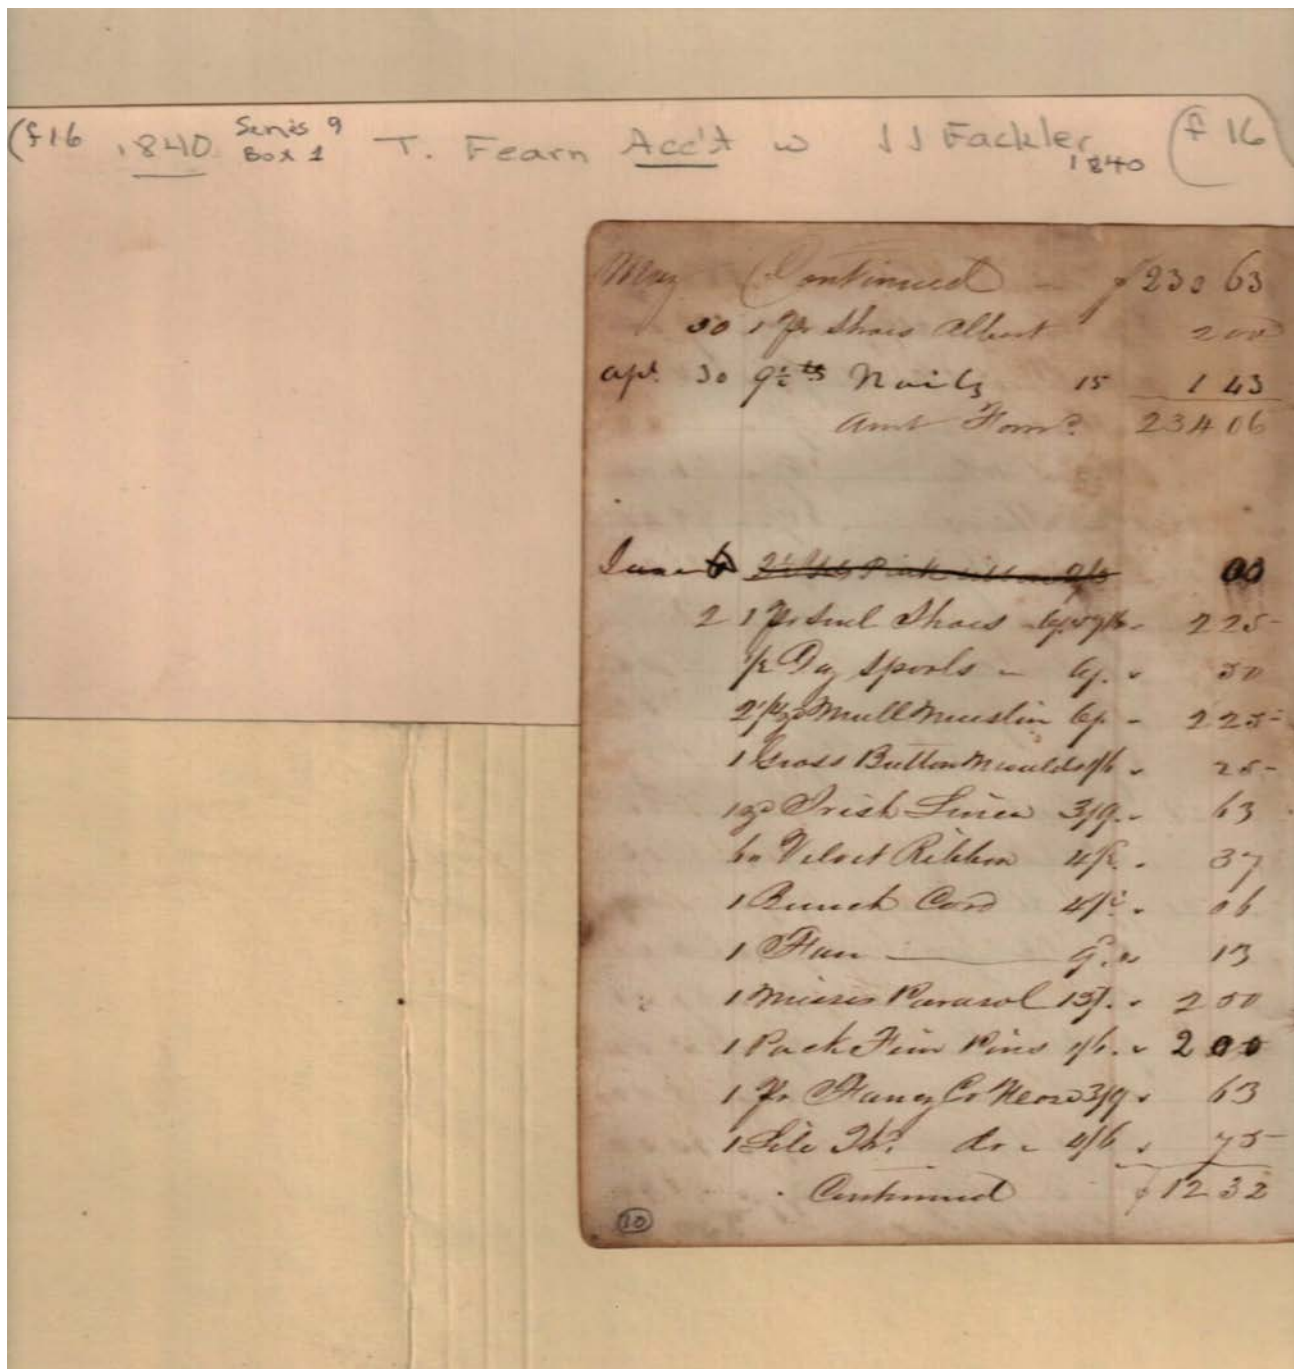 (f16 1840 Series 9 Box 1 T. Fearn Acc't w J J Fackler 1840 (f 16
May Continued - $230 63
30 1 Pr Shoes Albert 2 00
apl. 30 9½ lbs Nails 15 1 43
Amt Forwd. 234 06
June 6 00
2 1 Pr Shoes 2 25
½ Doz Spools - 6/. " 50
Mull Muslin 6/ - 2 25
1 Gross Button Moulds 1/6 " 25
1 yd Irish Linen 3/9 " 63
6 " Velvet Ribbon 4½ " 37
1 Bunch Cord 4½ " 06
1 Fan 9. " 13
1 Misses Parasol 15/. " 2 50
1 Pack Fine Pins " 2 00
1 Pr Fancy Co Hose 3/9 " 63
1 do - 4/6 " 75
Continued $12 32
10